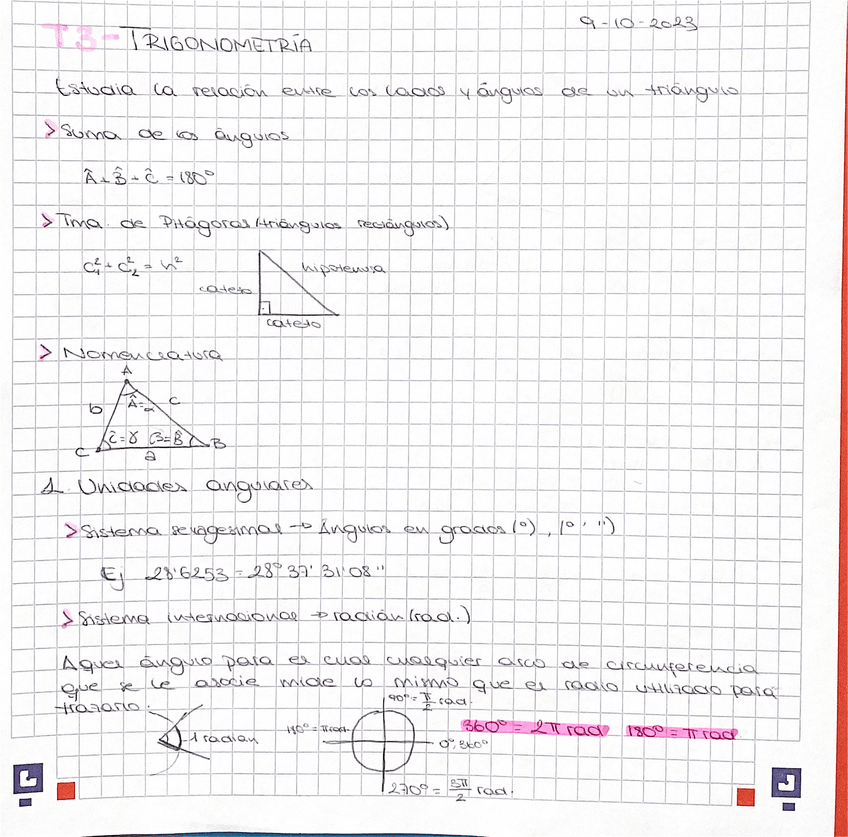 9-10-2023
T3-TRIGONOMETRÍA
Estudia la relación entre los lados y ángulos de un triángulo
> Suma de los ángulos
Â + B̂ + Ĉ = 180º
> Tma. de Pitágoras (triángulos rectángulos)
C₁² + C₂² = h²
hipotenusa
cateto
cateto
> Nomenclatura
A
b
Â=α
c
Ĉ=γ
β=B̂
C
B
a
1 Unidades angulares
> Sistema sexagesimal → Ángulos en grados (º), (º ' '')
Ej 28'6253 = 28º 37' 31'08''
> Sistema internacional → radián (rad.)
Aquel ángulo para el cual cualquier arco de circunferencia
que se le asocie mide lo mismo que el radio utilizado para
trazarlo.
1 radián
90º = π/2 rad.
180º = π rad.
0º, 360º
270º = 3π/2 rad.
360º = 2π rad
180º = π rad